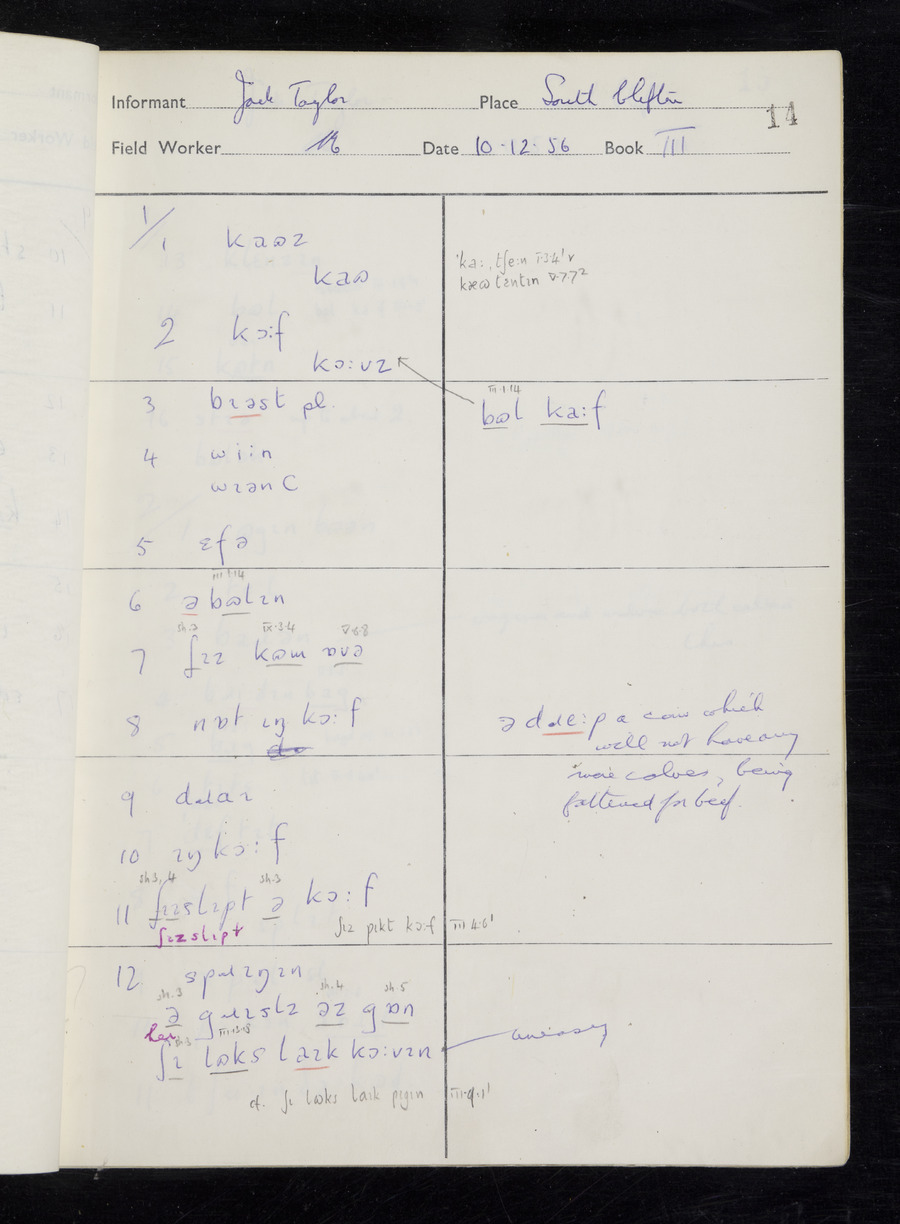 Informant Jack Taylor Place South Clifton
14
Field Worker Date 10.12.56 Book III
1/
1 kaʊz
kaʊ
'ka:, tʃe:n I.3.4¹ v
kæʊ tɛntɪn V.7.7²
2 kɔ:f
kɔ:vz
3 brɪəst pl
III.1.14
bʊl ka:f
4 wi:n
wɪən C
5 ɛfə
III.1.14
6 ə bʊlɪn
sh.3 IX.3.4 V.8.8
7 ʃɪz kʊm ɒvə
8 nɒt ɪŋ kɔ:f
ə dɹɛ:p a cow which
will not have any
more calves, being
fattened for beef.
9 dɹaɪ
10 ɪŋ kɔ:f
sh.3, 4 sh.3
11 ʃɪzslɪpt ə kɔ:f
ʃɪzslɪpt
ʃɪz pɪkt kɔ:f III 4.6¹
12 spɹɪŋɪn
sh.3 sh.4 sh.5
ə gɹɪslz əz gɒn
her
sh.3 III.13.18
ʃɪ lʊks laɪk kɔ:vɪn uneasy
cf. ʃɪ lʊks laɪk pɪgɪn III.9.1¹